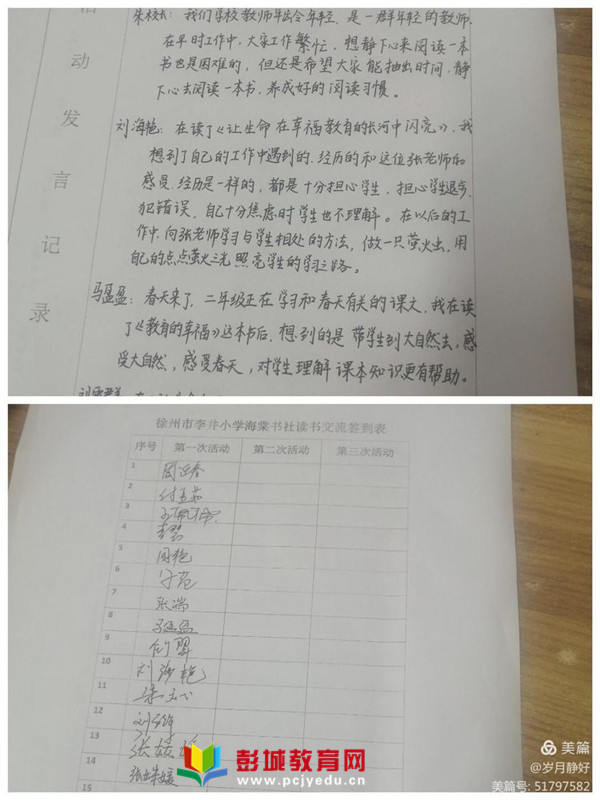 动
发
言
记
录
朱校长：我们学校教师年龄年轻，是一群年轻的教师，
在平时工作中，大家工作繁忙，想静下心来阅读一本
书也是困难的，但还是希望大家能抽出时间，静
下心去阅读一本书，养成好的阅读习惯。
刘海艳：在读了《让生命在幸福教育的长河中闪亮》，我
想到了自己的工作中遇到的、经历的和这位张老师的
感受、经历是一样的，都是十分担心学生，担心学生退步、
犯错误，自己十分焦虑时学生也不理解。在以后的工
作中，向张老师学习与学生相处的方法，做一只萤火虫，用
自己的点点萤火之光照亮学生的学习之路。
马盈盈：春天来了，二年级正在学习和春天有关的课文，我在读
了《教育的幸福》这本书后，想到的是带学生到大自然去，感
受大自然，感受春天，对学生理解课本知识更有帮助。
徐州市李井小学海棠书社读书交流签到表
序号 第一次活动 第二次活动 第三次活动
1
2
3
4 李翠
5 周艳
6
7 张端
8 马盈盈
9
10 刘海艳
11
12
13 张媛媛
14 张姝媛
15
彭城教育网
www.pcjyedu.cn
美篇
@岁月静好
美篇号: 51797582